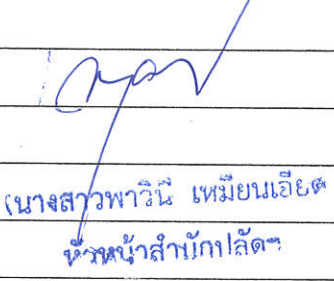 (นางสาวพาวินี เหมียนเอียด
หัวหน้าสำนักปลัดฯ